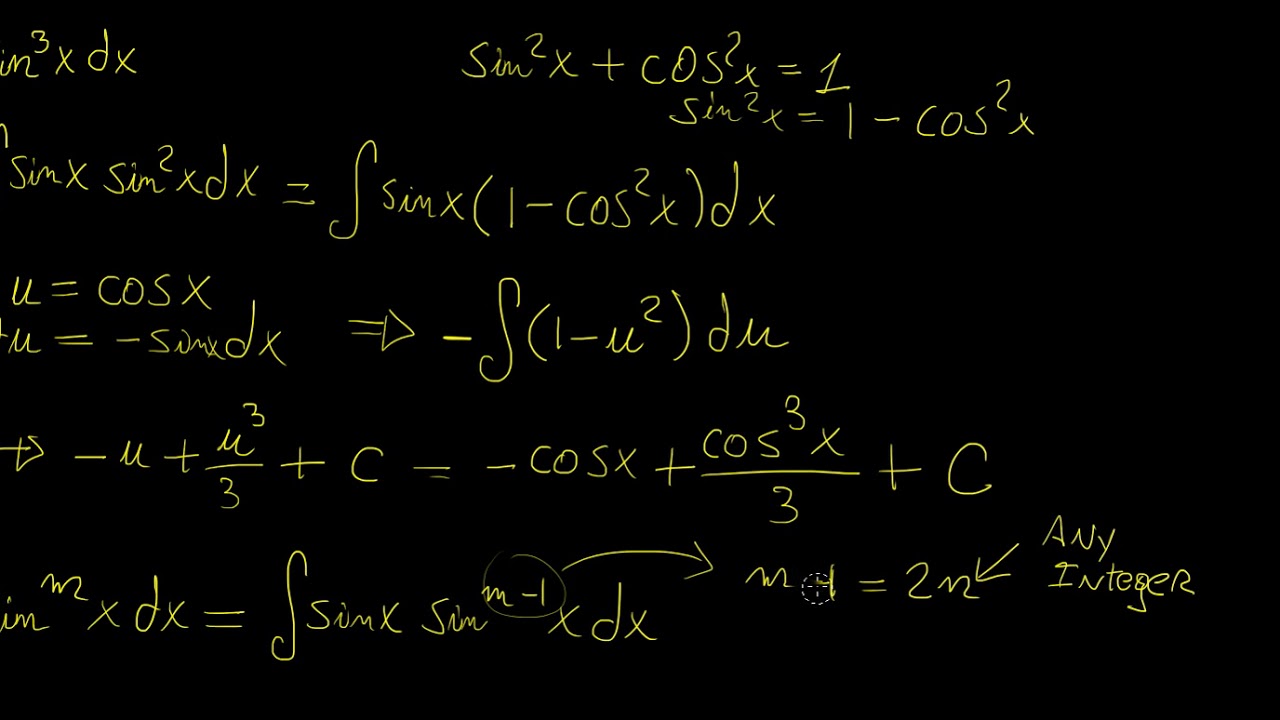 in³x dx
sin²x + cos²x = 1
sin²x = 1 - cos²x
∫sinx sin²x dx = ∫sinx(1 - cos²x)dx
u = cosx
du = -sinxdx ⇒ -∫(1-u²)du
⇒ -u + u³/3 + C = -cosx + cos³x/3 + C
in^m x dx = ∫sinx sin^(m-1) x dx → m-1 = 2n ← ANy
INtegeR